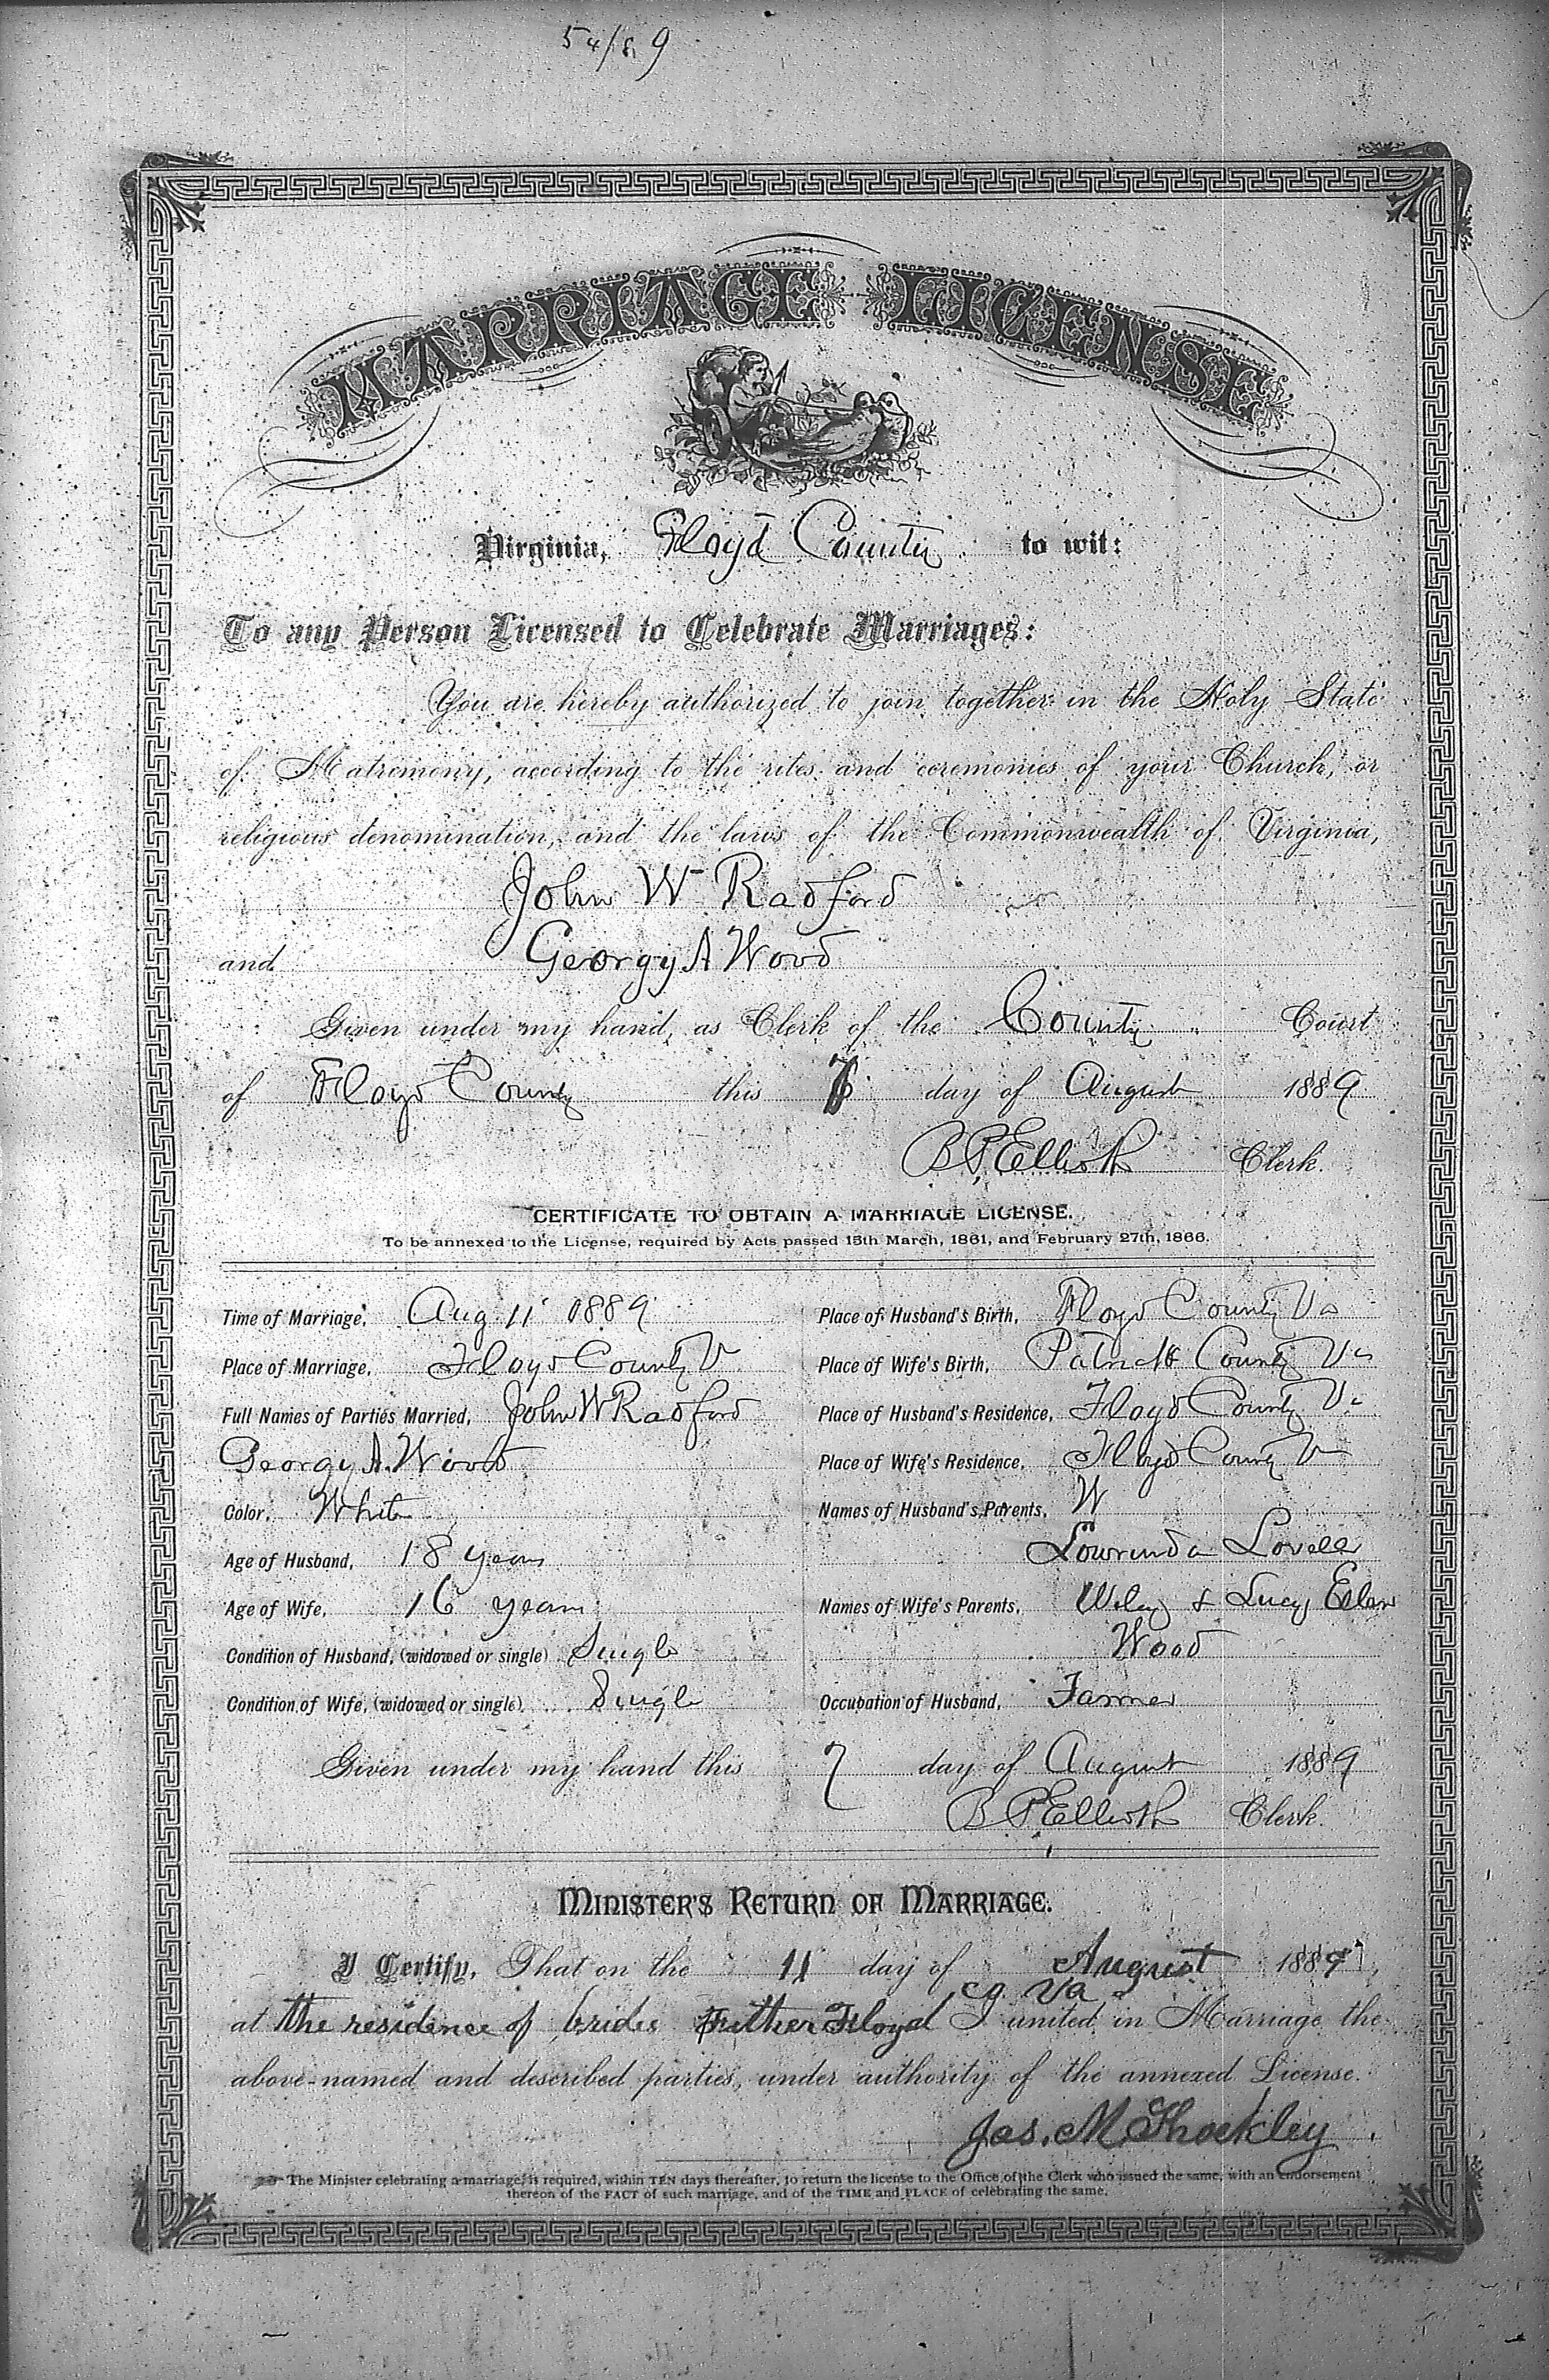 54/89
MARRIAGE LICENSE
Virginia, Floyd County to wit:
To any Person Licensed to Celebrate Marriages:
You are hereby authorized to join together in the Holy State
of Matrimony, according to the rites and ceremonies of your Church, or
religious denomination, and the laws of the Commonwealth of Virginia,
John W Radford
and Georgy A Wood
Given under my hand, as Clerk of the County Court
of Floyd County this 7 day of August 1889
B P Elliott Clerk.
CERTIFICATE TO OBTAIN A MARRIAGE LICENSE.
To be annexed to the License, required by Acts passed 15th March, 1861, and February 27th, 1866.
Time of Marriage, Aug 11 1889
Place of Marriage, Floyd County V
Full Names of Parties Married, John W Radford
Georgy A. Wood
Color, White
Age of Husband, 18 years
Age of Wife, 16 years
Condition of Husband, (widowed or single) Single
Condition of Wife, (widowed or single) Single
Place of Husband's Birth, Floyd County Va
Place of Wife's Birth, Patrick County Va
Place of Husband's Residence, Floyd County Va
Place of Wife's Residence, Floyd County Va
Names of Husband's Parents, W
Lowrinda Lovell
Names of Wife's Parents, Wiley & Lucy Ellen
Wood
Occupation of Husband, Farmer
Given under my hand this 7 day of August 1889
B P Elliott Clerk.
MINISTER'S RETURN OF MARRIAGE.
I Certify, That on the 11 day of August 1889,
at the residence of brides Father Floyd co Va I united in Marriage the
above-named and described parties, under authority of the annexed License.
Jas. M. Shockley
The Minister celebrating a marriage, is required, within TEN days thereafter, to return the license to the Office of the Clerk who issued the same, with an endorsement
thereon of the FACT of such marriage, and of the TIME and PLACE of celebrating the same.